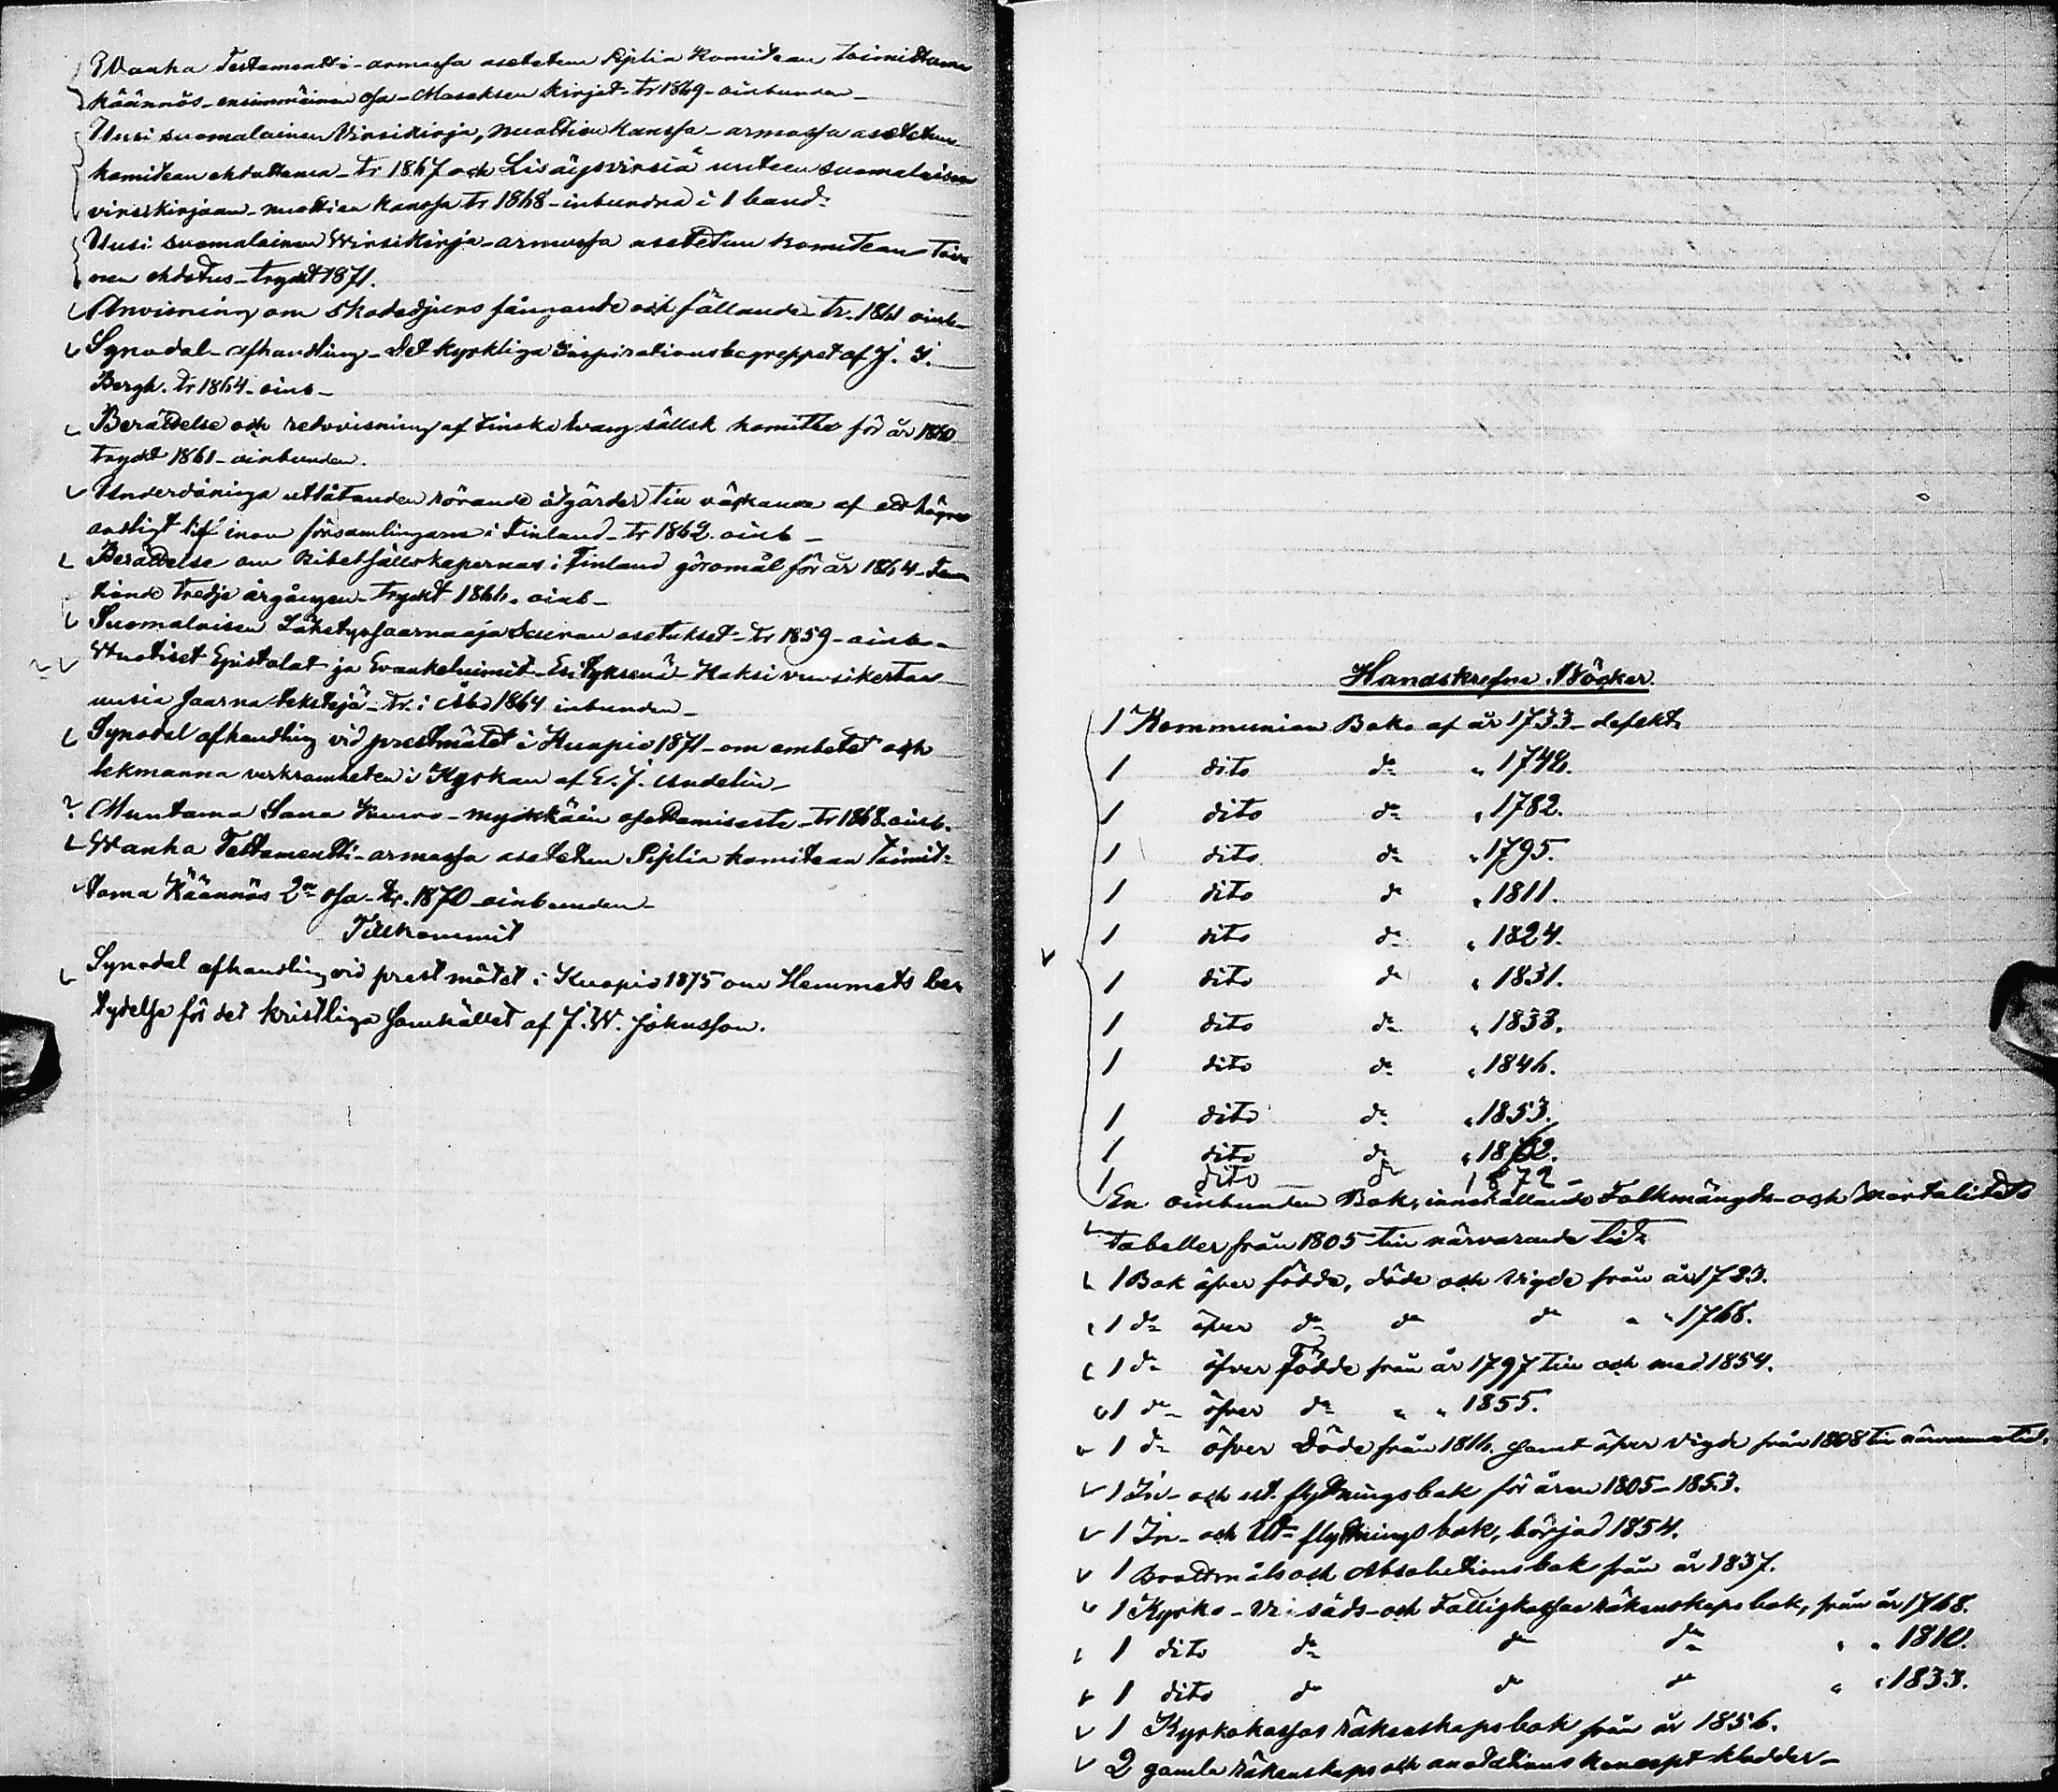 Wanha Testamentti - armossa asetetun Piplia Komitean toimittama
käännös - ensimmäinen osa - Moseksen kirjat - tr 1869 - oinbunden -
Uusi suomalainen Virsikirja, nuottien kanssa - armossa asetetun
komitean ehdottama - tr 1867 och Lisäysvirsiä uuteen suomalaisen
virsikirjaan - nuottien kanssa tr 1868 - inbundna i 1 band:
Uusi suomalainen Wirsikirja - armossa asetetun komitean toi-
nen ehdotus - tryckt 1871.
Anvisning om Skadedjurs fångande och fällande - tr. 1861 oinb -
Synodal - afhandling - Det kyrkliga Inspirationsbegreppet af J. I.
Bergh. tr 1864 - oinb -
Berättelse och redovisning af Finska Evang sällsk komitté för år 1860
tryckt 1861 - oinbunden.
Underdåniga utlåtanden rörande åtgärder till väckande af ett högre
andligt lif inom församlingarne i Finland - tr 1862. oinb -
Berättelse om Bibelsällskapernas i Finland göromål för år 1864 - Fem
tionde tredje årgången - tryckt 1866. oinb -
Suomalaisen Lähetyssaarnaaja Seuran asetukset - tr 1859 - oinb -
Wuotiset Epistolat ja Evankeliumit - Esityksenä - Kaksi vuosikertaa
uusia saarna tekstejä - tr. i Åbo 1864 inbunden -
Synodal afhandling vid prestmötet i Kuopio 1871 - om embetet och
lekmanna verksamheten i Kyrkan af E. J. Andelin -
? Muutama Sana Kuuro - mykkäin opettamisesta - tr 1868. oinb.
Wanha Testamentti - armossa asetetun Piplia komitean toimit-
tama Käännös 2n osa - tr. 1870 - oinbunden -
Tillkommit
Synodal afhandling vid prestmötet i Kuopio 1875 om Hemmets be-
tydelse för det kristliga samhället af J. W. Johnsson.
Handskrefne Böcker.
1 Kommunion Bok af år 1733 - defekt.
1 dito do " 1746.
1 dito do " 1782.
1 dito do " 1795.
1 dito do " 1811.
1 dito do " 1824.
1 dito do " 1831.
1 dito do " 1838.
1 dito do " 1846.
1 dito do " 1853.
1 dito do " 1862.
1 dito do 1872 -
En oinbunden Bok, innehållande Folkmängds - och Mortalitets
tabeller från 1805 till närvarande tid.
1 Bok öfver födde, döde och Vigde från år 1723.
1 do öfver do do do " " 1768.
1 do öfver Födde från år 1797 till och med 1854.
1 do öfver do " " 1855.
1 do öfver Döde från 1816. samt öfver Vigde från 1808 till närvarande tid.
1 In - och ut - flyttningsbok för åren 1805 - 1853.
1 In - och Ut - flyttnings bok, börjad 1854.
1 Brottmåls och Absolutionsbok från år 1837.
1 Kyrko - säds - och Fattigkassas Räkenskaps bok, från år 1768.
1 dito do do do " " 1810.
1 dito do do do " " 1833.
1 Kyrkokassas Räkenskapsbok från år 1856.
2 gamla Räkenskaps och annotations koncept kladdar -